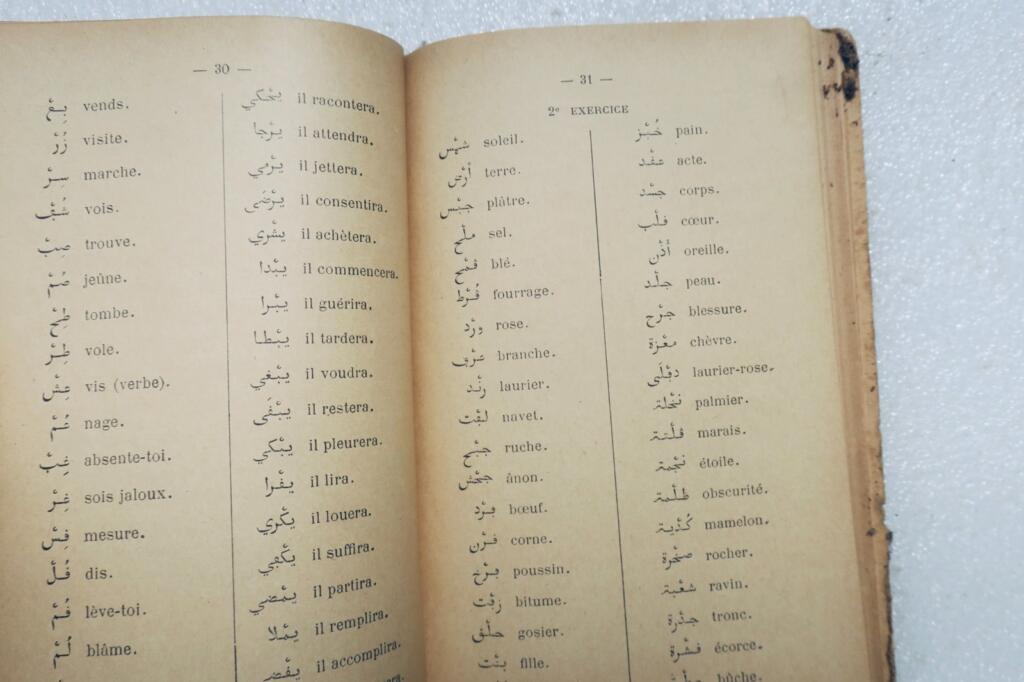 — 30 —
بِعْ vends.
زُرْ visite.
سِرْ marche.
شُڢْ vois.
صِبْ trouve.
صُمْ jeûne.
طِحْ tombe.
طِرْ vole.
عِشْ vis (verbe).
عُمْ nage.
غِبْ absente-toi.
غِرْ sois jaloux.
ڧِسْ mesure.
ڧُلْ dis.
ڧُمْ lève-toi.
لُمْ blâme.
يحْكي il racontera.
يرْجا il attendra.
يرْمي il jettera.
يرْضَى il consentira.
يشْري il achètera.
يبْدا il commencera.
يبْرا il guérira.
يبْطا il tardera.
يبْغي il voudra.
يبْڧَى il restera.
يبْكي il pleurera.
يڧْرا il lira.
يكْري il louera.
يكْڢي il suffira.
يمْضي il partira.
يمْلا il remplira.
il accomplira.
— 31 —
2e EXERCICE
شمْس soleil.
أرْض terre.
جبْس plâtre.
ملْح sel.
ڧمْح blé.
ڧُرْط fourrage.
ورْد rose.
عرْڢ branche.
رنْد laurier.
لڢْت navet.
جبْح ruche.
جحْش ânon.
bœuf.
ڧرْن corne.
ڢرْخ poussin.
زڢْت bitume.
حلْڧ gosier.
بنْت fille.
خُبْز pain.
عڧْد acte.
جسْد corps.
ڧلْب cœur.
أُذْن oreille.
جلْد peau.
جرْح blessure.
معْزة chèvre.
دڢْلَى laurier-rose.
نخْلة palmier.
ڧلْتة marais.
نجْمة étoile.
ظلْمة obscurité.
كُدْية mamelon.
صخْرة rocher.
شعْبة ravin.
جدْرة tronc.
ڧشْرة écorce.
bûche.